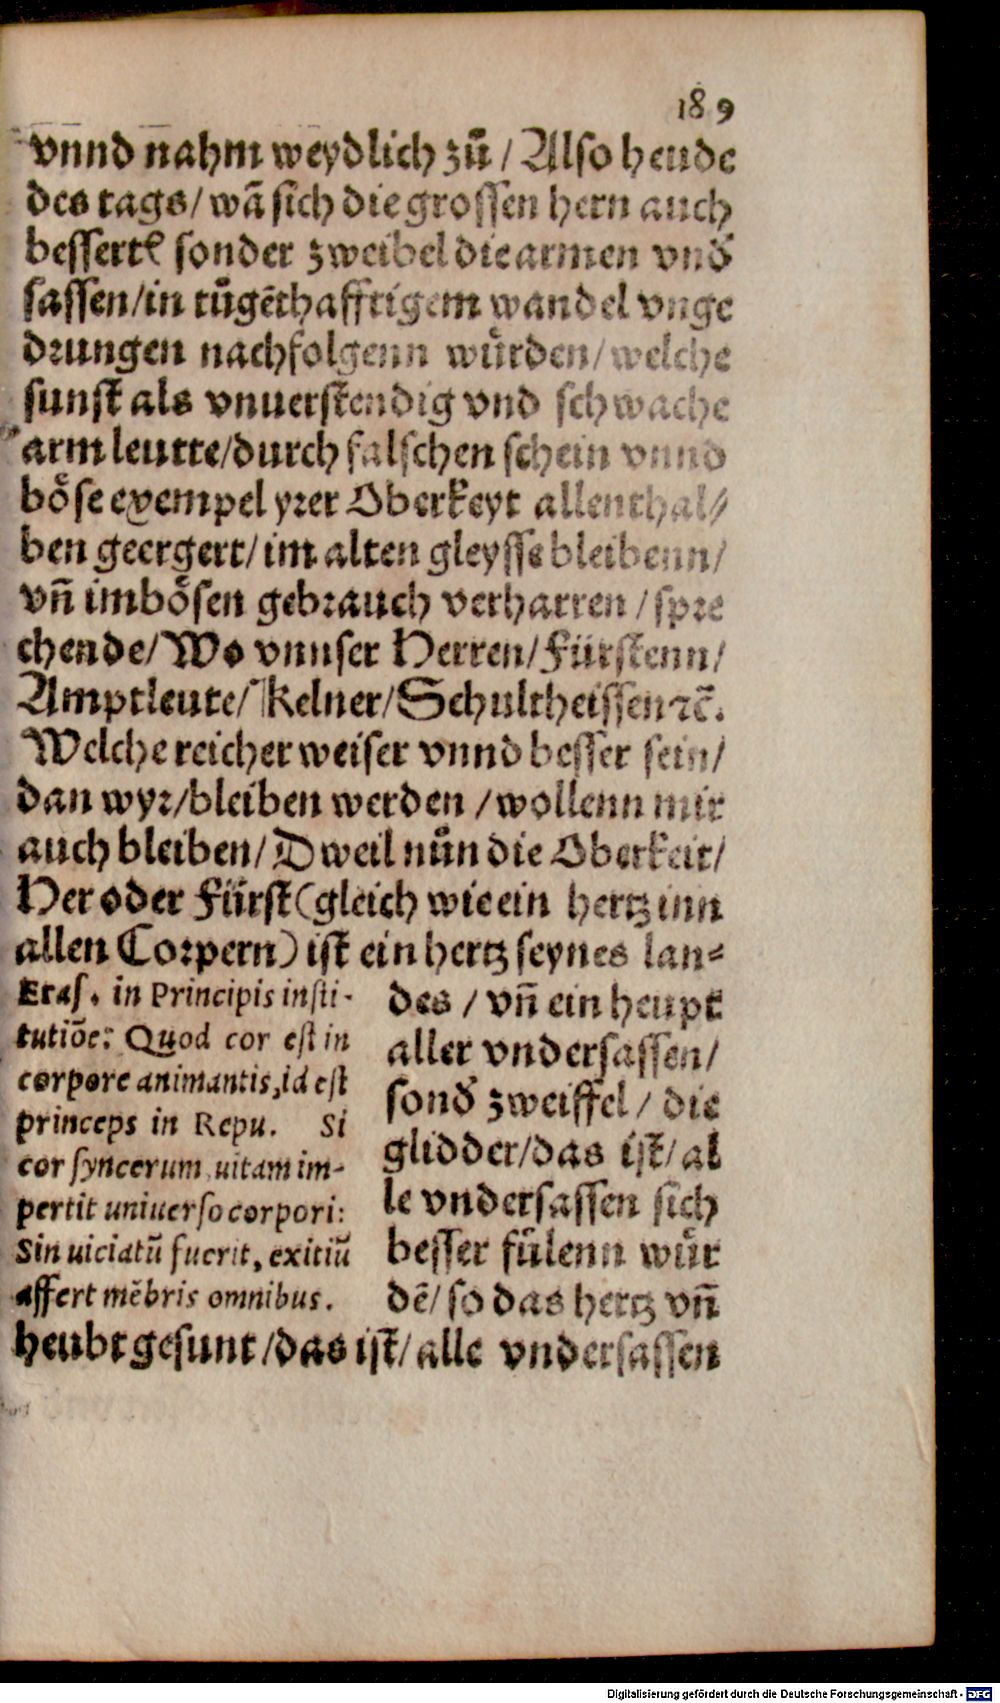 189
vnnd nahm weydlich zů / Also heude
des tags / wã sich die grossen hern auch
bessertẽ sonder zweibel die armen vnd̕
sassen / in tůgẽthafftigem wandel vnge
drungen nachfolgenn würden / welche
sunst als vnuerstendig vnd schwache
arm leutte / durch falschen schein vnnd
böse exempel yrer Oberkeyt allenthal⸗
ben geergert / im alten gleysse bleibenn /
vñ imbösen gebrauch verharren / spre
chende / Wo vnnser Herren / Fürstenn /
Amptleute / Kelner / Schultheissen ⁊c̃.
Welche reicher weiser vnnd besser sein /
dan wyr / bleiben werden / wollenn mir
auch bleiben / Dweil nůn die Oberkeit /
Her oder Fürst (gleich wie ein hertz inn
allen Corpern) ist ein hertz seynes lan⸗
des / vñ ein heupt
aller vndersassen /
sond̕ zweiffel / die
glidder / das ist / al
le vndersassen sich
besser fülenn wür
dẽ / so das hertz vñ
heubt gesunt / das ist / alle vndersassen
Eras. in Principis insti-
tutiõe: Quod cor est in
corpore animantis, id est
princeps in Repu. Si
cor syncerum, uitam im-
pertit uniuerso corpori:
Sin uiciatũ fuerit, exitiũ
affert mẽbris omnibus.
Digitalisierung gefördert durch die Deutsche Forschungsgemeinschaft - DFG